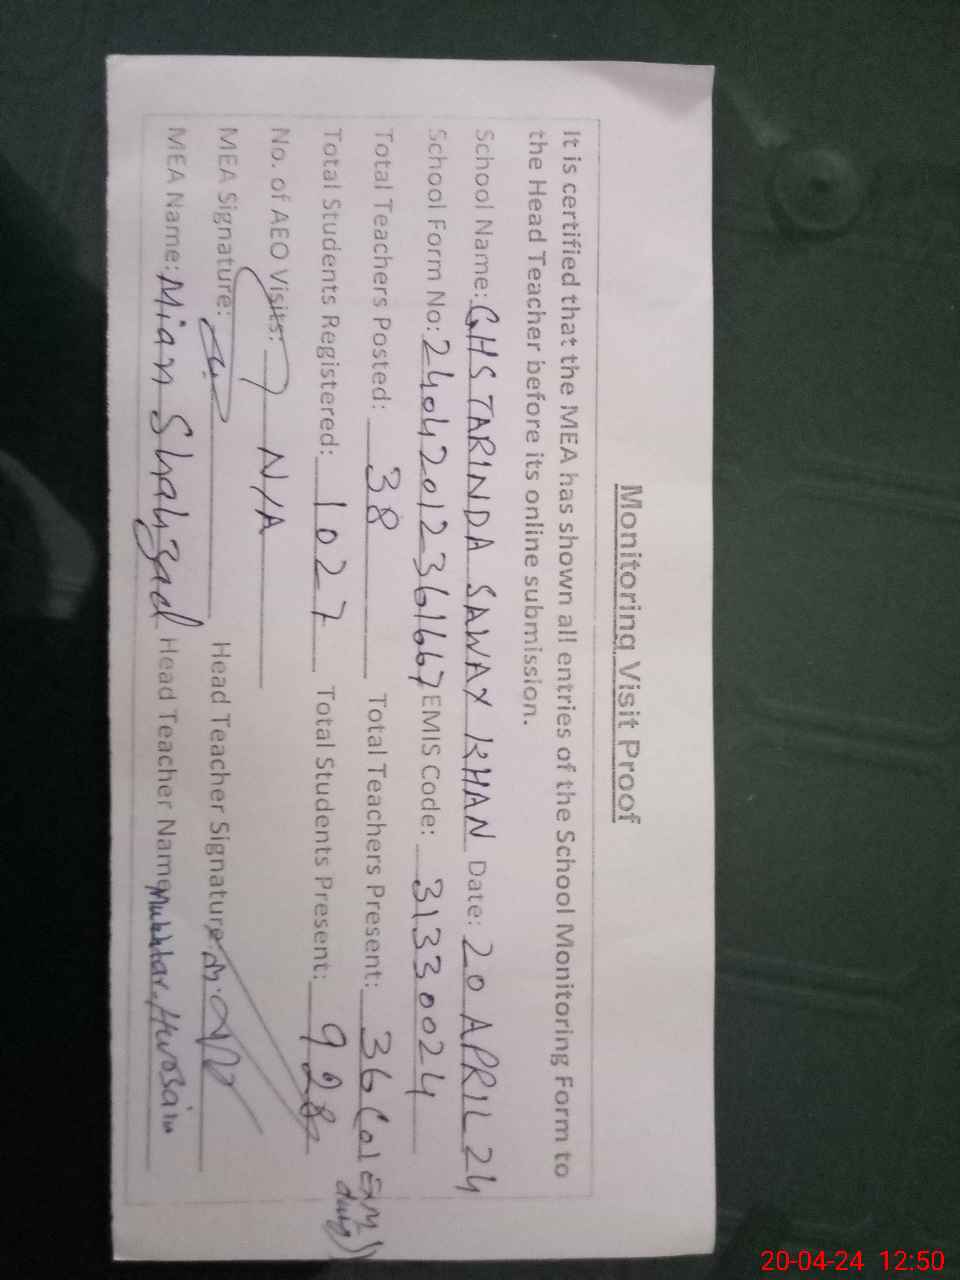 Monitoring Visit Proof
It is certified that the MEA has shown all entries of the School Monitoring Form to
the Head Teacher before its online submission.
School Name: GHS TARINDA SAWAY KHAN Date: 20 APRIL 24
School Form No: 2404201236166 7 EMIS Code: 31330024
Total Teachers Posted: 38 Total Teachers Present: 36 (01 EXM duty))
Total Students Registered: 1027 Total Students Present: 928
No. of AEO Visits: N/A
MEA Signature: Head Teacher Signature:
MEA Name: Mian Shahzad Head Teacher Name Mukhtar Hussain
20-04-24 12:50